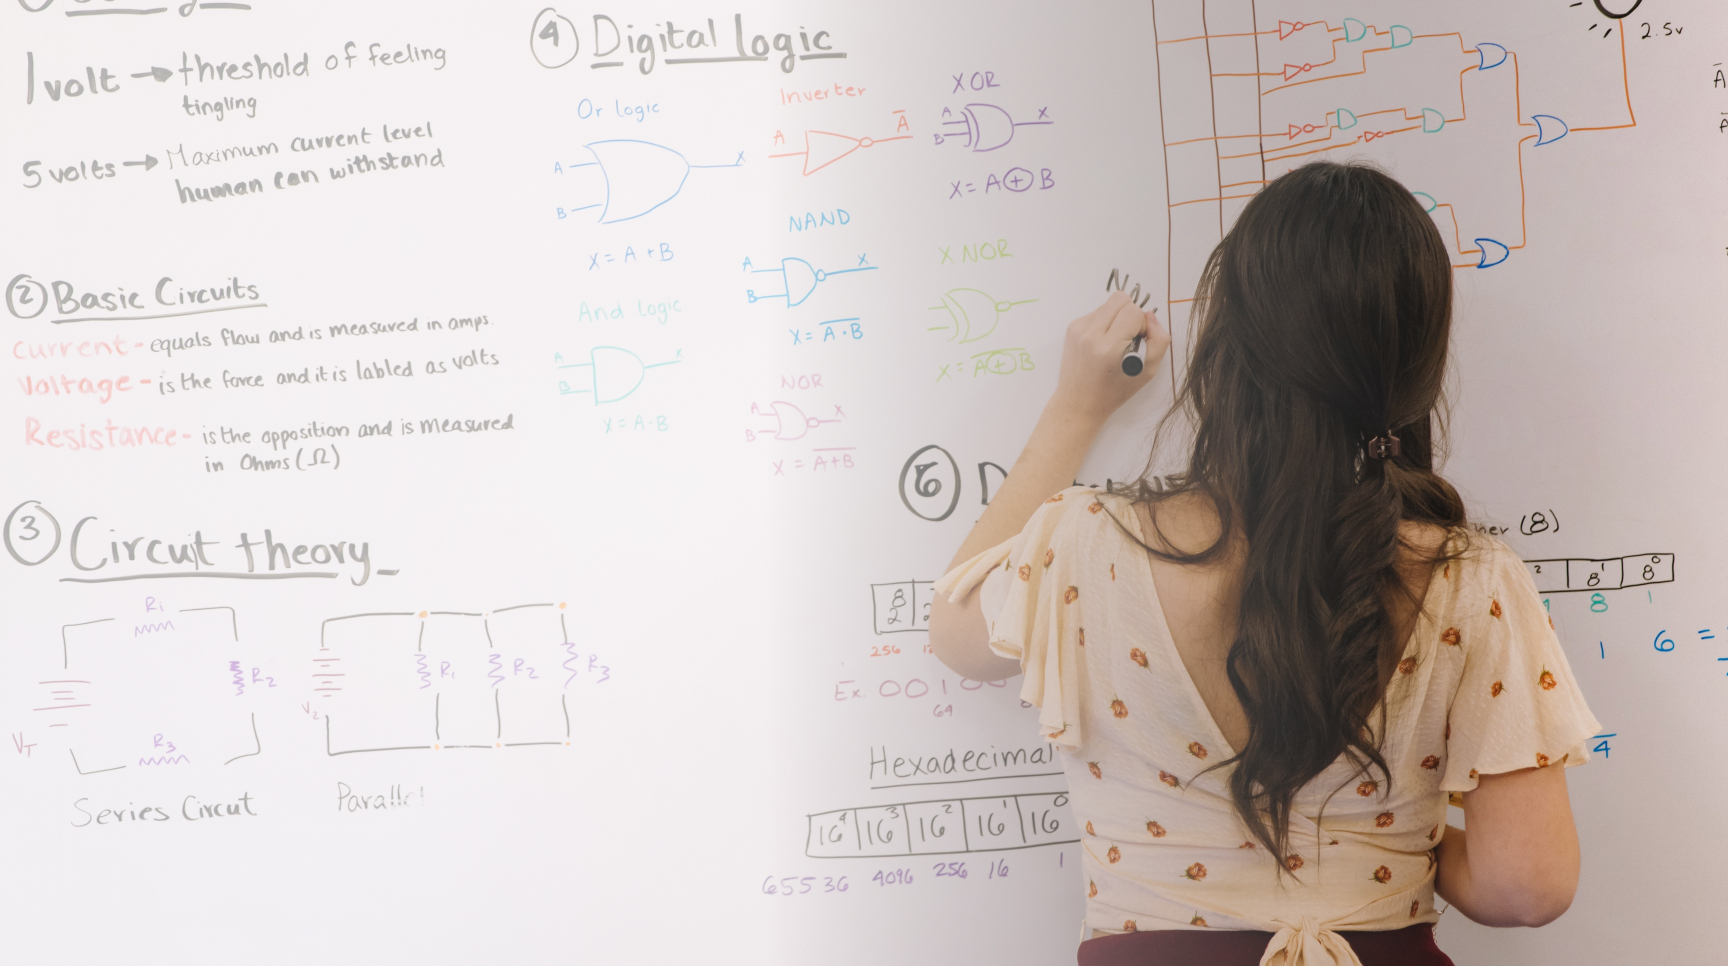 1 volt → threshold of feeling
tingling
5 volts → Maximum current level
human can withstand
② Basic Circuits
Current - equals flow and is measured in amps.
Voltage - is the force and it is labled as volts
Resistance - is the opposition and is measured
in Ohms (Ω)
③ Circuit theory
R₁
R₂
R₃
V_T
Series Circut
R₁ R₂ R₃
V₂
Parallel
④ Digital logic
Or logic
A
B
X
X = A + B
And logic
A
B
X
X = A · B
Inverter
A
A̅
NAND
A
B
X
X = A̅ ̅·̅ ̅B̅
NOR
A
B
X
X = A̅+̅B̅
XOR
A
B
X
X = A ⊕ B
X NOR
X = A̅ ̅⊕̅ ̅B̅
2.5v
(8)
8¹ 8⁰
8 1
1 6 =
4
256
Ex. 0 0 1 0 0
64
Hexadecimal
16⁴ 16³ 16² 16¹ 16⁰
65536 4096 256 16 1